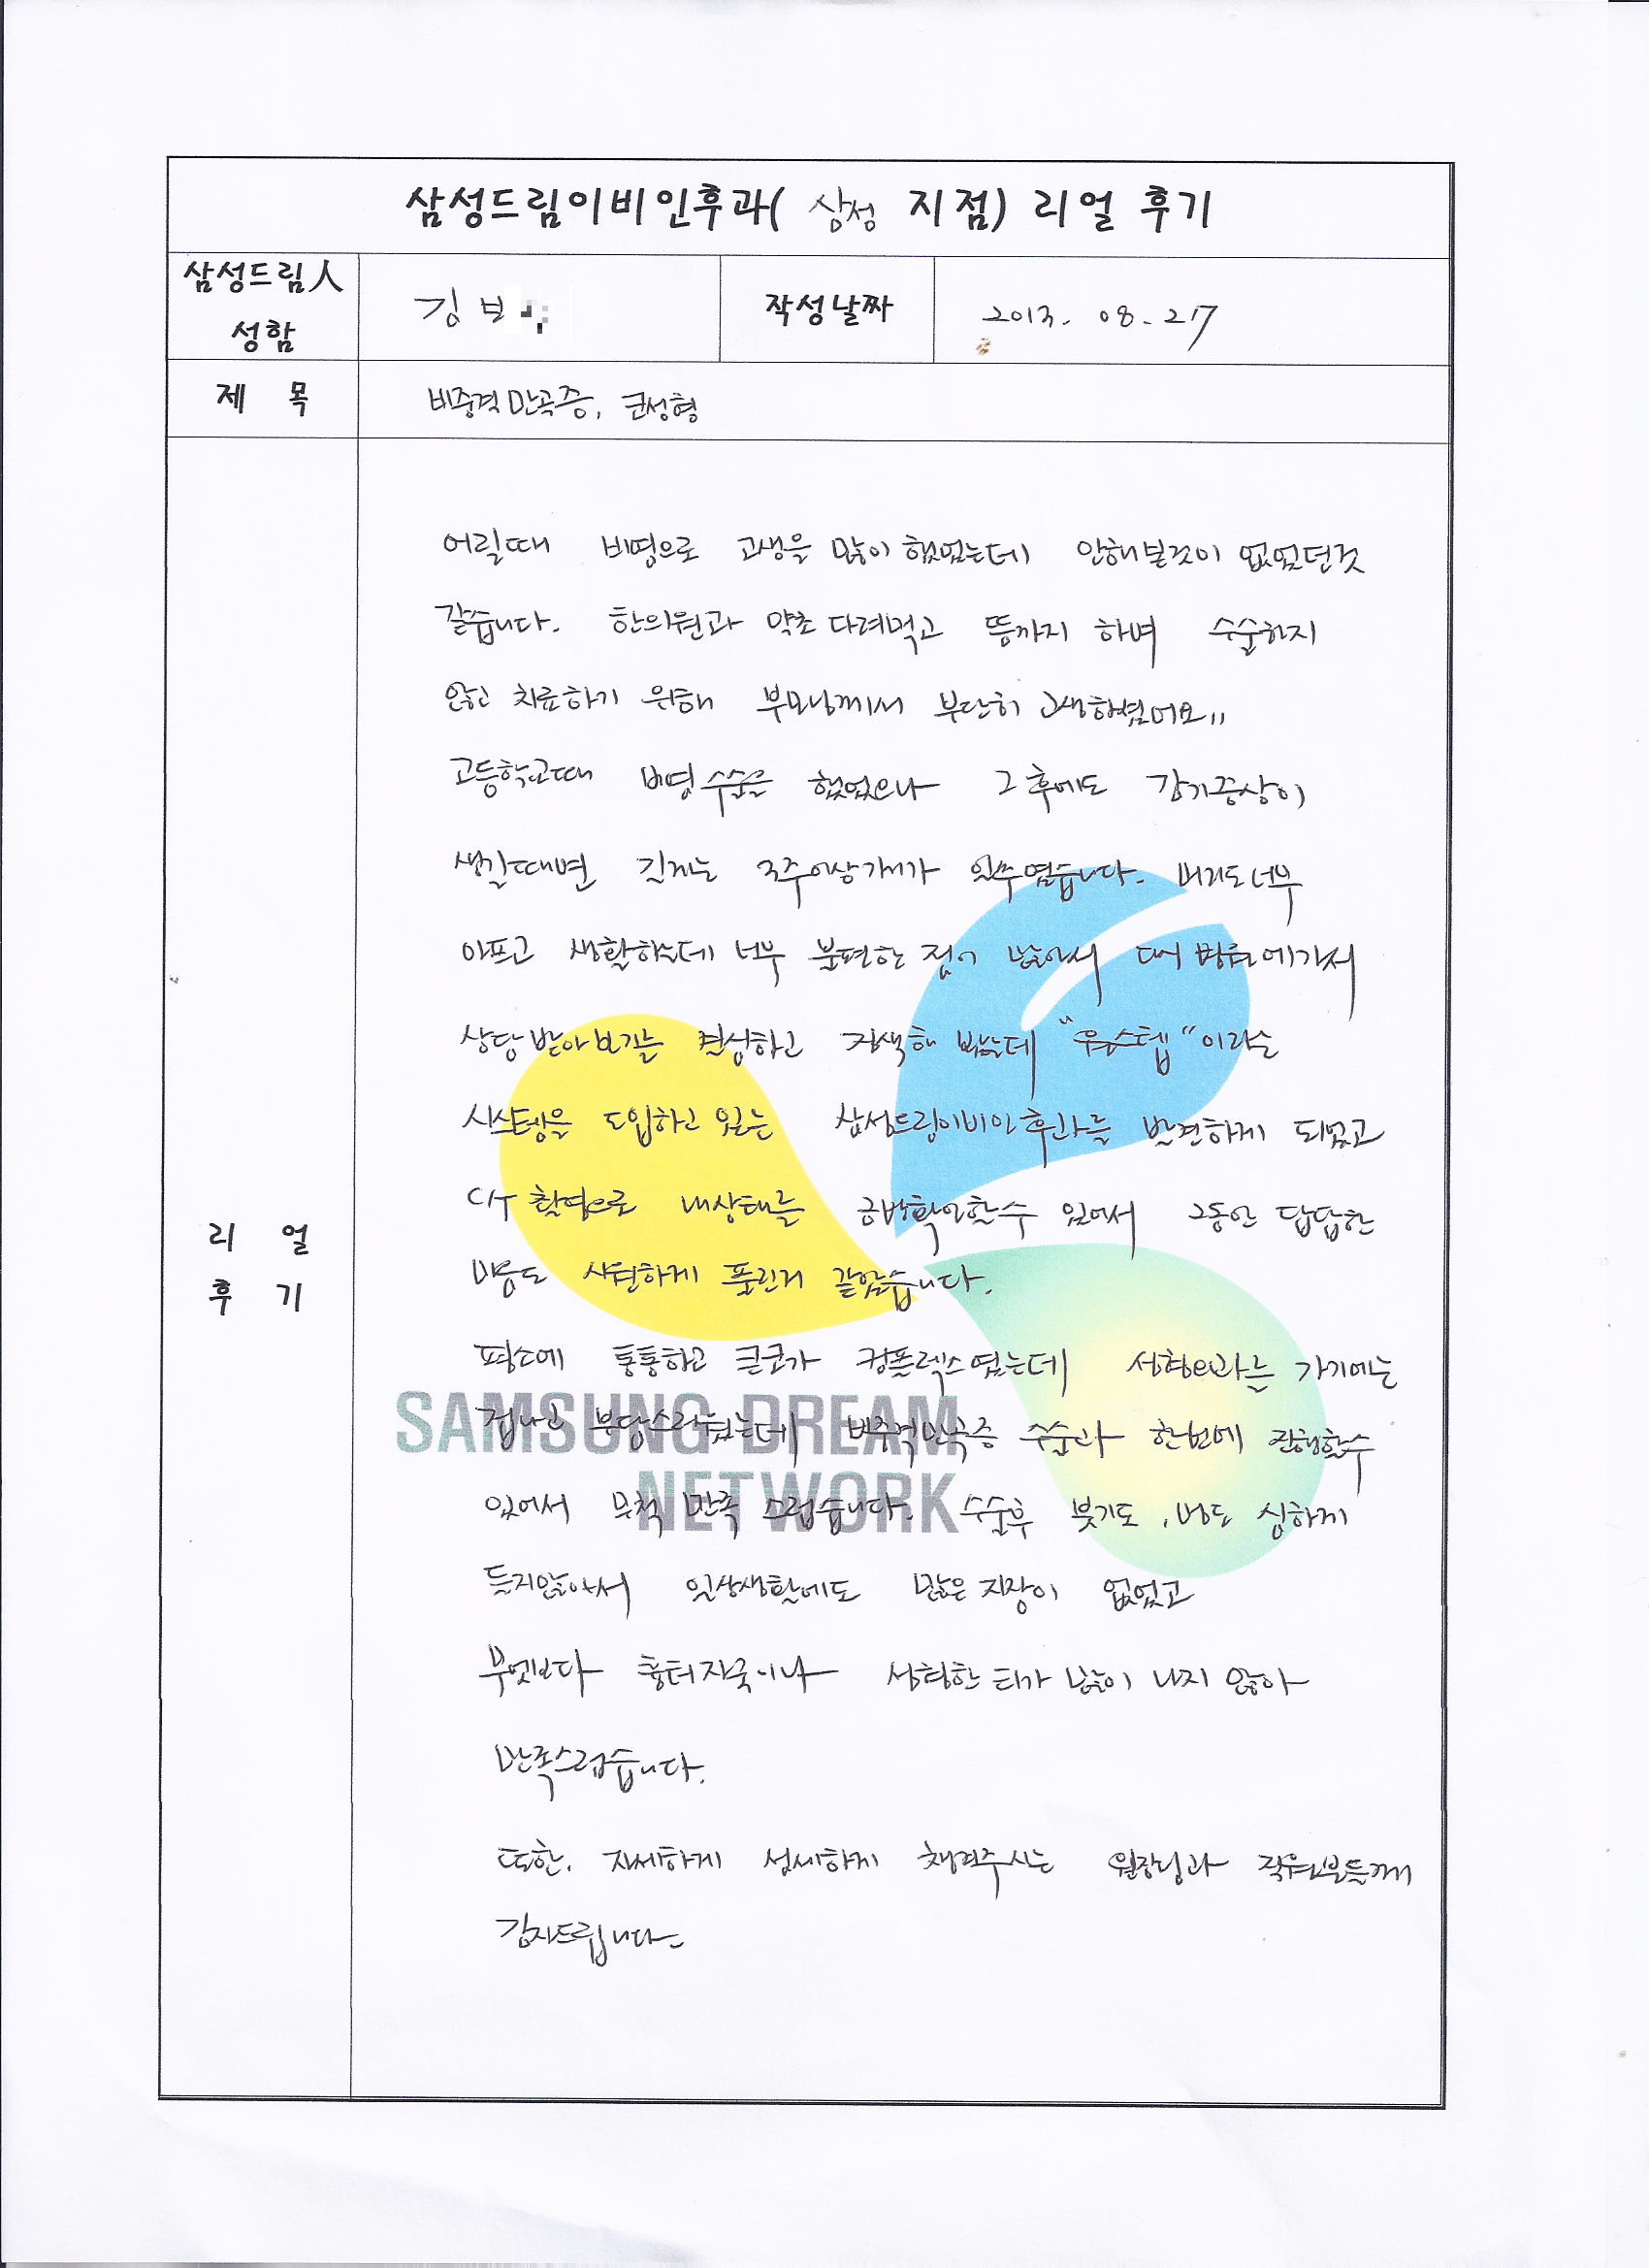 삼성드림이비인후과( 삼성 지점) 리얼 후기
삼성드림人
성함
김보
작성날짜
2013. 08. 27
제 목
비중격만곡증, 코성형
어릴때 비염으로 고생을 많이 했었는데 안해본것이 없었던것
같습니다. 한의원과 약초 다려먹고 뜸까지 하며 수술하지
않고 치료하기 위해 부모님께서 부단히 고생하셨어요"
고등학교때 비염수술을 했었으나 그 후에도 감기증상이
생길때면 길게는 3주이상가기가 일수였습니다. 머리도너무
아프고 생활하는데 너무 불편한 점이 많아서 대형병원에가서
상담받아보기를 결심하고 검색해 봤는데 "원스텝"이라는
시스템을 도입하고 있는 삼성드림이비인후과를 발견하게 되었고
C/T 촬영으로 내상태를 금방확인할수 있어서 그동안 답답한
마음도 시원하게 풀린거 같았습니다.
평소에 통통하고 큰코가 컴플렉스였는데 성형외과를 가기에는
겁나고 부담스러웠는데 비중격만곡증 수술과 한번에 진행할수
있어서 무척 만족 스럽습니다. 수술후 붓기도, 멍도 심하게
들지않아서 일상생활에도 많은 지장이 없었고
무엇보다 흉터자국이나 성형한 티가 많이 나지 않아
만족스럽습니다.
또한. 자세하게 섬세하게 챙겨주시는 원장님과 직원분들께
감사드립니다.
리 얼
후 기
SAMSUNG DREAM
NETWORK